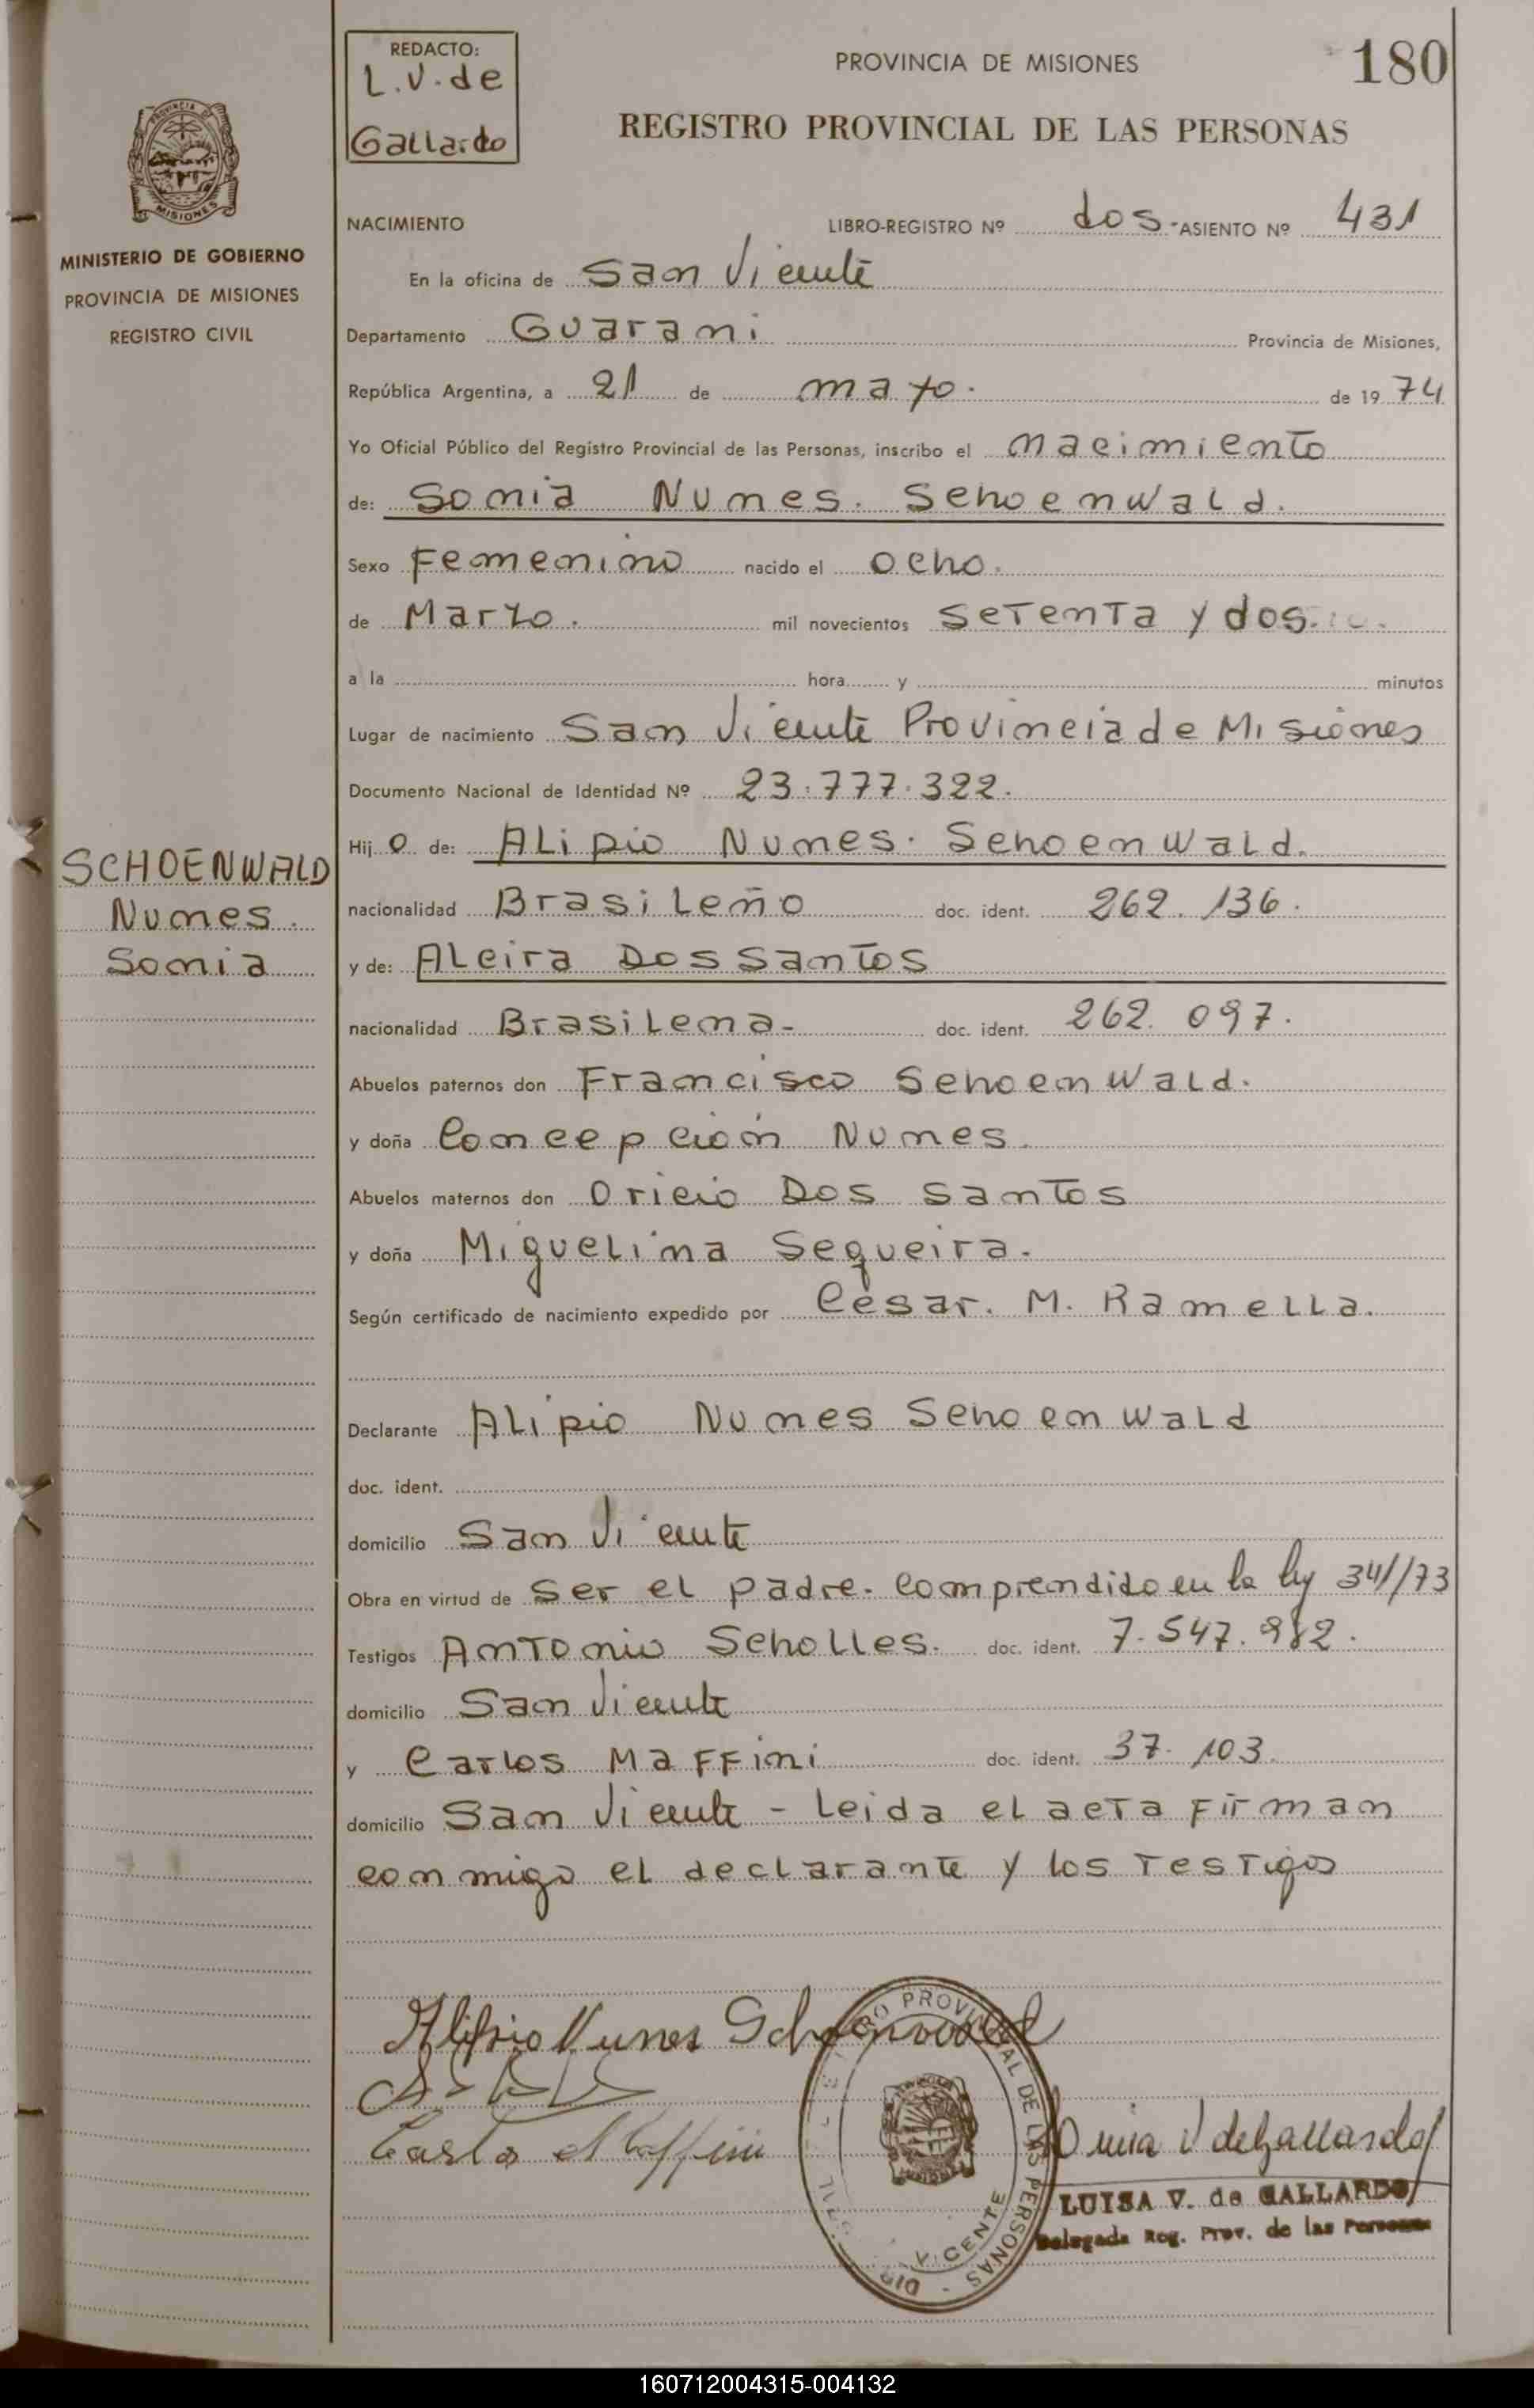 180
REDACTO:
L.V. de
Gallardo
PROVINCIA DE MISIONES
REGISTRO PROVINCIAL DE LAS PERSONAS
MISIONES
MINISTERIO DE GOBIERNO
PROVINCIA DE MISIONES
REGISTRO CIVIL
NACIMIENTO LIBRO-REGISTRO Nº dos - ASIENTO Nº 431
En la oficina de San Vicente
Departamento Guarani Provincia de Misiones,
República Argentina, a 21 de mayo. de 19 74
Yo Oficial Público del Registro Provincial de las Personas, inscribo el nacimiento
de: Sonia Nunes. Schoenwald.
Sexo Femenino nacido el ocho.
de Marzo. mil novecientos setenta y dos.
a la hora y minutos
Lugar de nacimiento San Vicente Provincia de Misiones
Documento Nacional de Identidad Nº 23.777.322.
Hij o de: Alipio Nunes. Schoenwald.
SCHOENWALD
Nunes.
Sonia
nacionalidad Brasileño doc. ident. 262.136.
y de: Alcira Dos Santos
nacionalidad Brasilena- doc. ident. 262.097.
Abuelos paternos don Francisco Schoenwald.
y doña Concepción Nunes.
Abuelos maternos don Oricio Dos Santos
y doña Miguelina Sequeira.
Según certificado de nacimiento expedido por César. M. Ramella.
Declarante Alipio Nunes Schoenwald
doc. ident.
domicilio San Vicente
Obra en virtud de ser el padre. Comprendido en la ley 341/73
Testigos Antonio Scholles. doc. ident. 7.547.982.
domicilio San Vicente
y Carlos Maffini doc. ident. 37.103.
domicilio San Vicente - Leida el acta firman
conmigo el declarante y los testigos
Alipio Nunes Schoenwald
Carlos Maffini
PROVINCIAL DE LAS PERSONAS
VICENTE
Luisa V de Gallardo
LUISA V. de GALLARDO
Delegada Reg. Prov. de las Personas
160712004315-004132